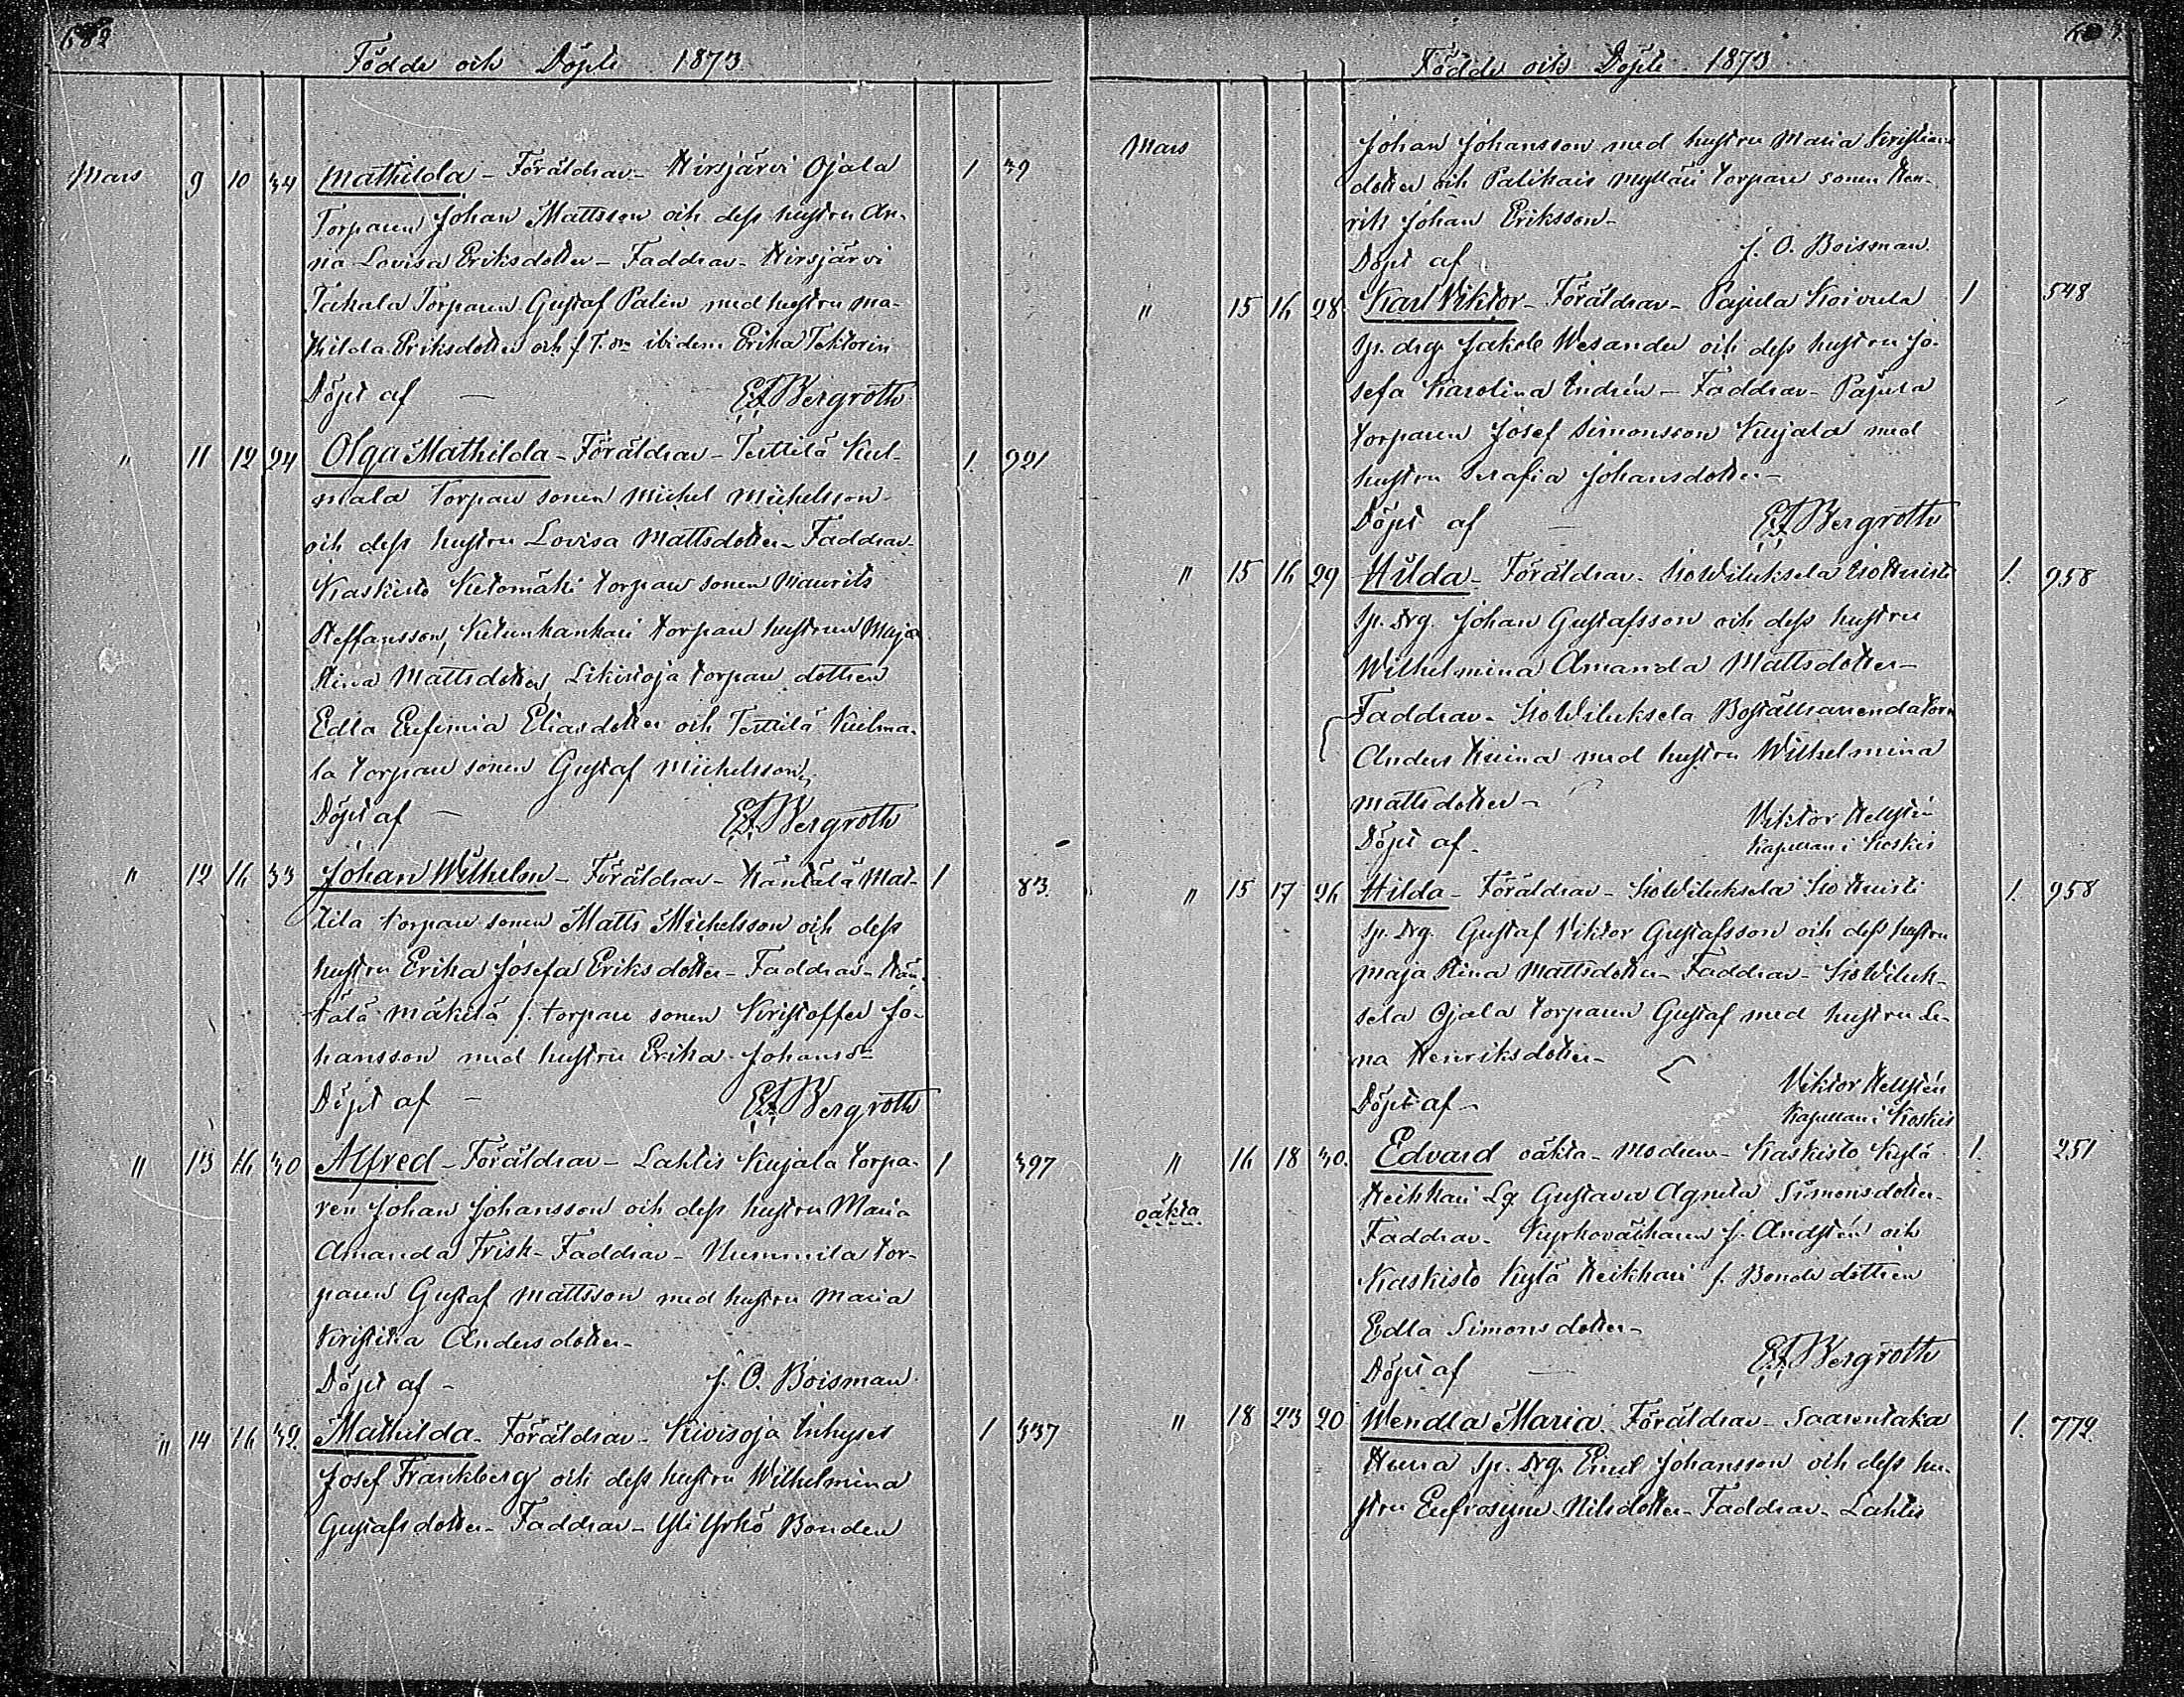 682
Födde och Döpte 1873
Mars 9 10 34 Mathilda - Föräldrar - Hirsjärvi Ojala 1 39
Torparen Johan Mattsson och dess hustru An-
na Lovisa Eriksdotter - Faddrar - Hirsjärvi
Torparen Gustaf Palin med hustru Ma-
thilda Eriksdotter och ibidem Erika Tektorin
Döpt af - E.F. Bergroth
" 11 12 24 Olga Mathilda - Föräldrar - Terttilä Kul- 1. 921
mala Torpare sonen Michel Michelsson
och dess hustru Lovisa Mattsdotter - Faddrar -
Kaskisto Ketomäki torpare sonen Maurits
Steffansson, torpare hustrun Maja
Stina Mattsdotter, Likistoja torpare dottren
Edla Eufemia Eliasdotter och Terttilä Kulma-
la torpare sonen Gustaf Michelsson,
Döpt af - E.F. Bergroth
" 12 16 33 Johan Wilhelm - Föräldrar - Häntälä Mat- 1 83.
tila torpare sonen Matts Michelsson och dess
hustru Erika Josefa Eriksdotter - Faddrar - Hän-
tälä Mäkilä f. torpare sonen Kristoffer Jo-
hansson med hustru Erika Johansdr
Döpt af - E.F. Bergroth
" 13 16 30 Alfred - Föräldrar - Lahtis Kujala torpa- 1 397
ren Johan Johansson och dess hustru Maria
Amanda Frisk - Faddrar - Nummila tor-
paren Gustaf Mattsson med hustru Maria
Kristina Andersdotter -
Döpt af - J. O. Boisman
" 14 16 32. Mathilda - Föräldrar - Kivisoja Inhyses 1 337
Josef Frankberg och dess hustru Wilhelmina
Gustafsdotter - Faddrar - Yli Yrkö Bonden
Födde och Döpte 1873
Mars Johan Johansson med hustru Maria Kristians-
dotter och Palikais Mylläri torpare sonen Hen-
rik Johan Eriksson -
Döpt af J. O. Boisman
" 15 16 28. Karl Viktor - Föräldrar - Pajula Koivula 1 548
Sp. drg. Jakob Wesander och dess hustru Jo-
sefa Karolina Andrén - Faddrar - Pajula
torparen Josef Simonsson Kujala med
hustru Serafia Johansdotter -
Döpt af - E.F. Bergroth
" 15 16 29 Hilda - Föräldrar - Iso Wiluksela Iso 1. 958
Sp. drg. Johan Gustafsson och dess hustru
Wilhelmina Amanda Mattsdotter -
Faddrar - Iso Wiluksela Boställsarendatorn
Anders med hustru Wilhelmina
Mattsdotter -
Döpt af - Viktor Hellstén
Kapellan i Koskis
" 15 17 26 Hilda - Föräldrar - Iso Wiluksela Iso 1. 958
Sp. drg. Gustaf Viktor Gustafsson och dess hustru
Maja Stina Mattsdotter - Faddrar - Iso Wiluk-
sela Ojala torparen Gustaf med hustru Le-
na Henriksdotter -
Döpt af - Viktor Hellstén
Kapellan i Koskis
" 16 18 30. Edvard oäkta - Modren - Kaskisto Kylä 1. 251
oäkta Heikkari Lg. Gustava Agneta Simonsdotter -
Faddrar - Kyrkovaktaren J. Andstén och
Kaskisto Kylä Heikkari f. Bonde dottren
Edla Simonsdotter -
Döpt af - E.F. Bergroth
" 18 23 20 Wendla Maria. Föräldrar - Saarentaka 1. 772.
Sp. drg. Emil Johansson och dess hu-
stru Eufrosyne Nilsdotter - Faddrar - Lahtis